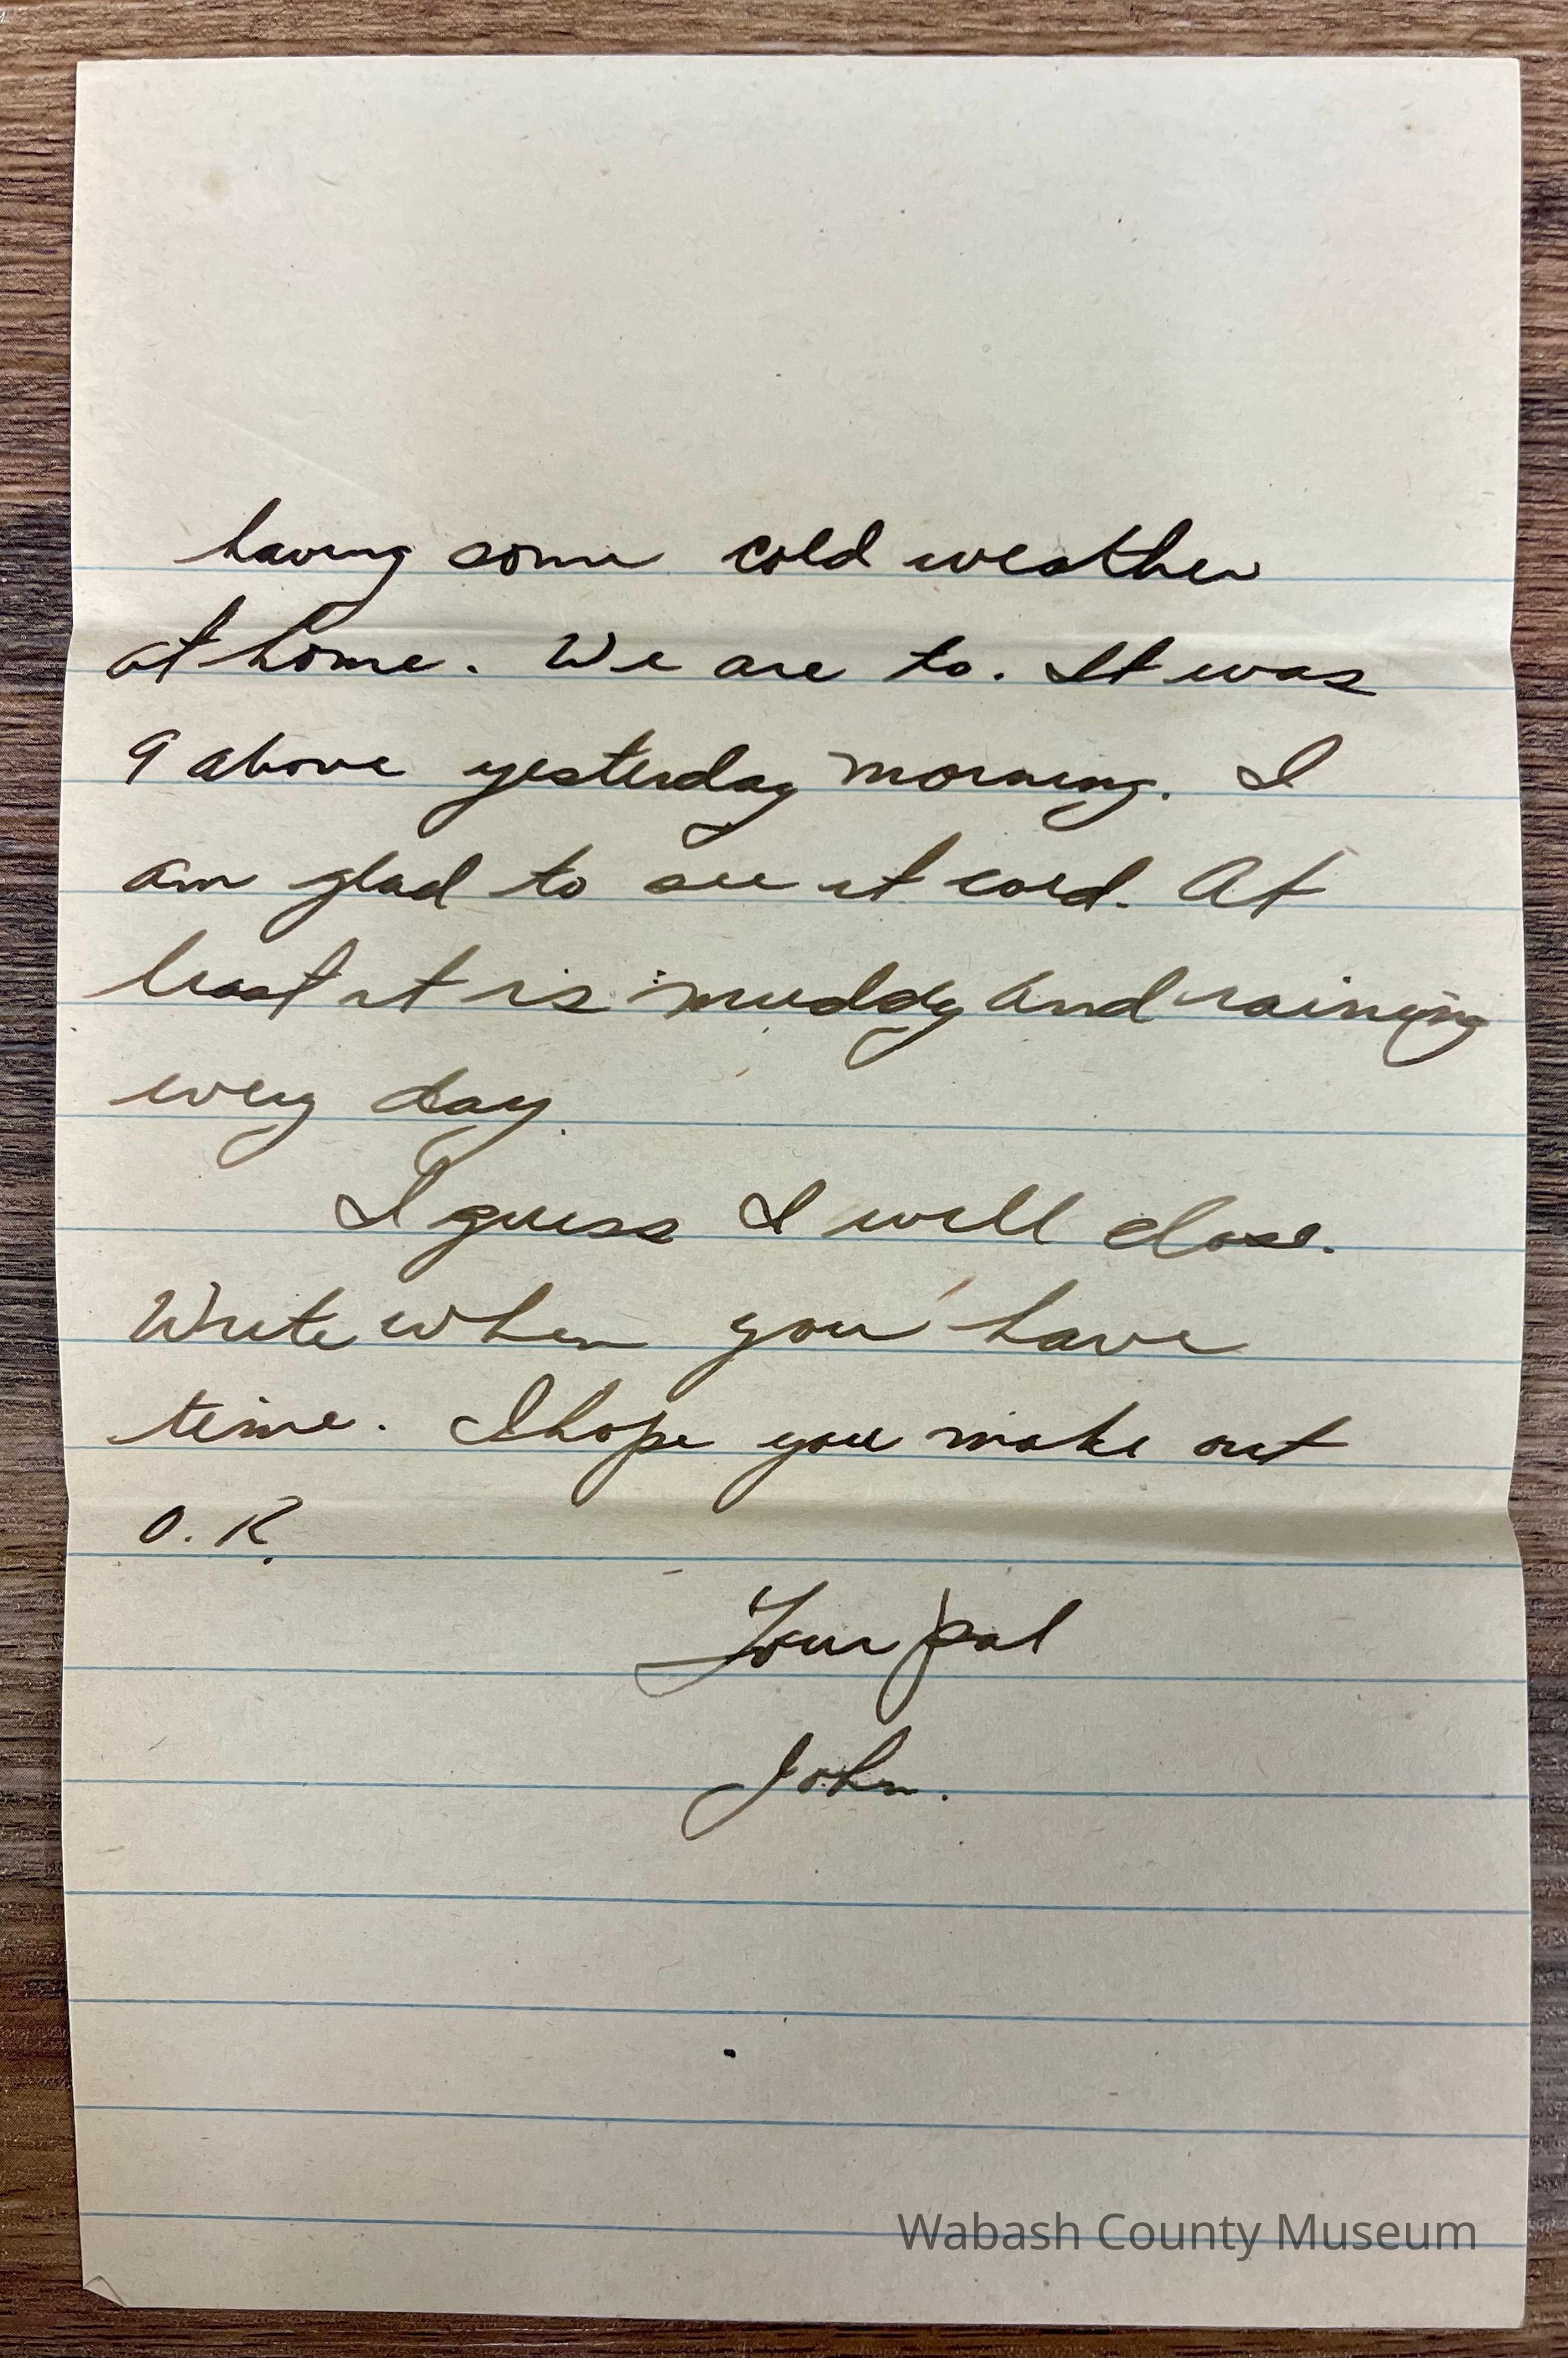 having some cold weather
at home. We are to. It was
9 above yesterday morning. I
am glad to see it cold. At
least it is muddy and raining
every day.
I guess I will close.
Write when you have
time. I hope you make out
O.K.
Your pal
John.
Wabash County Museum